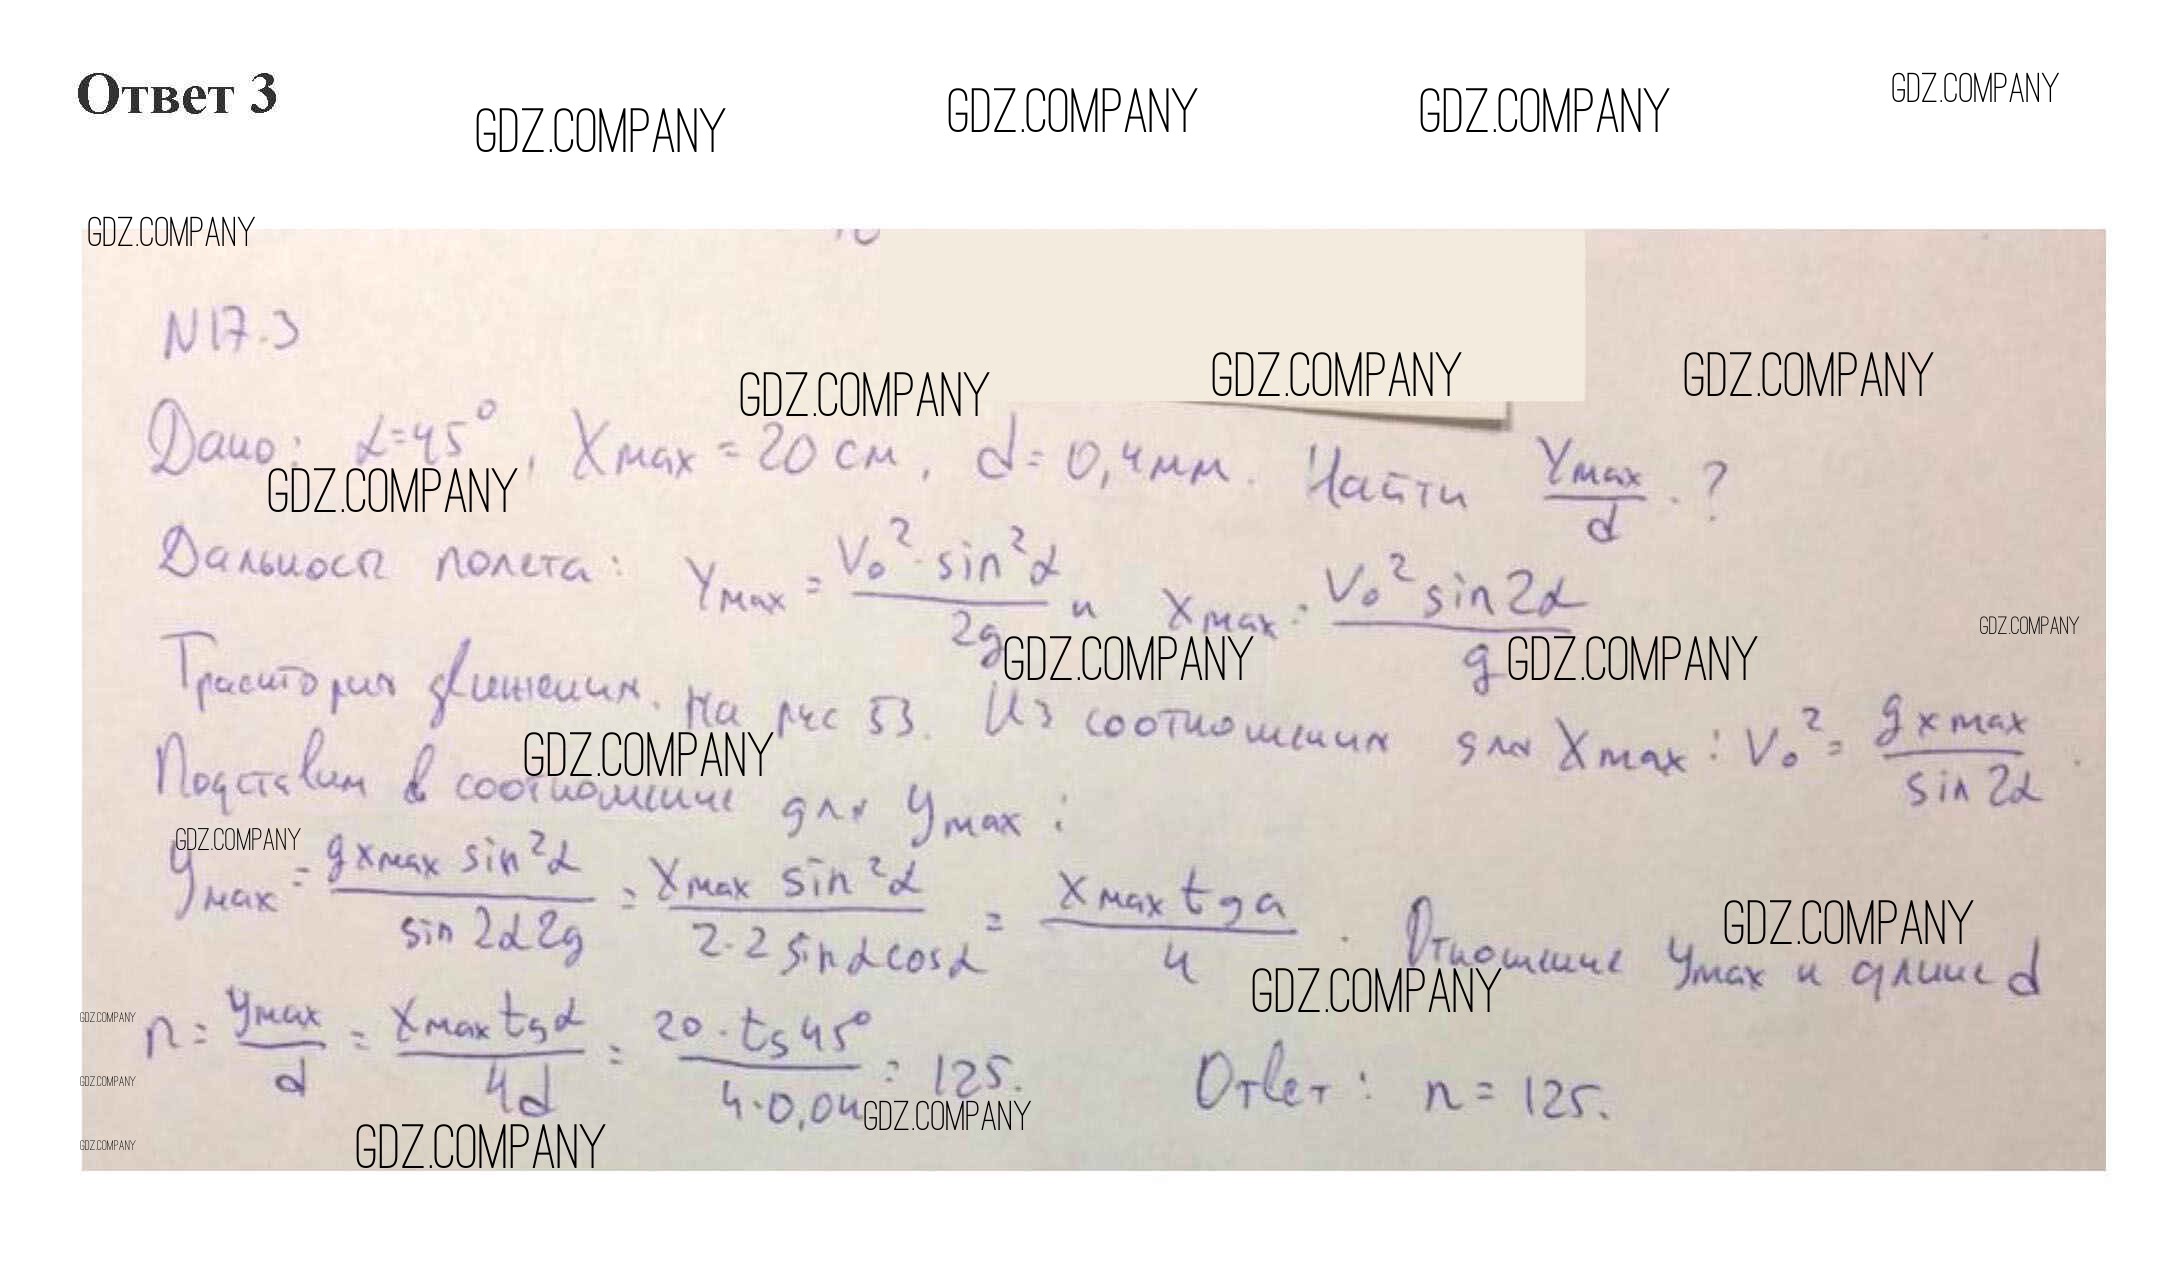 Ответ 3
GDZ.COMPANY GDZ.COMPANY GDZ.COMPANY GDZ.COMPANY
GDZ.COMPANY
N17.3
GDZ.COMPANY GDZ.COMPANY GDZ.COMPANY
Дано: α=45°, Xmax = 20 см, d = 0,4 мм. Найти Ymax/d. ?
GDZ.COMPANY
Дальность полета: Ymax = V₀²·sin²α/2g и Xmax = V₀² sin2α/g
GDZ.COMPANY GDZ.COMPANY GDZ.COMPANY
Траектория движения. на рис 53. Из соотношения для Xmax: V₀² = g xmax/sin 2α.
GDZ.COMPANY
Подставим в соотношение для Ymax:
GDZ.COMPANY
Ymax = g xmax sin²α/sin 2α 2g = Xmax sin²α/2·2 sinα cosα = Xmax tg a/4. Отношение Ymax и длине d
GDZ.COMPANY
GDZ.COMPANY
GDZ.COMPANY
n = Ymax/d = Xmax tgα/4d = 20·tg45°/4·0,04 = 125. Ответ: n = 125.
GDZ.COMPANY
GDZ.COMPANY
GDZ.COMPANY GDZ.COMPANY